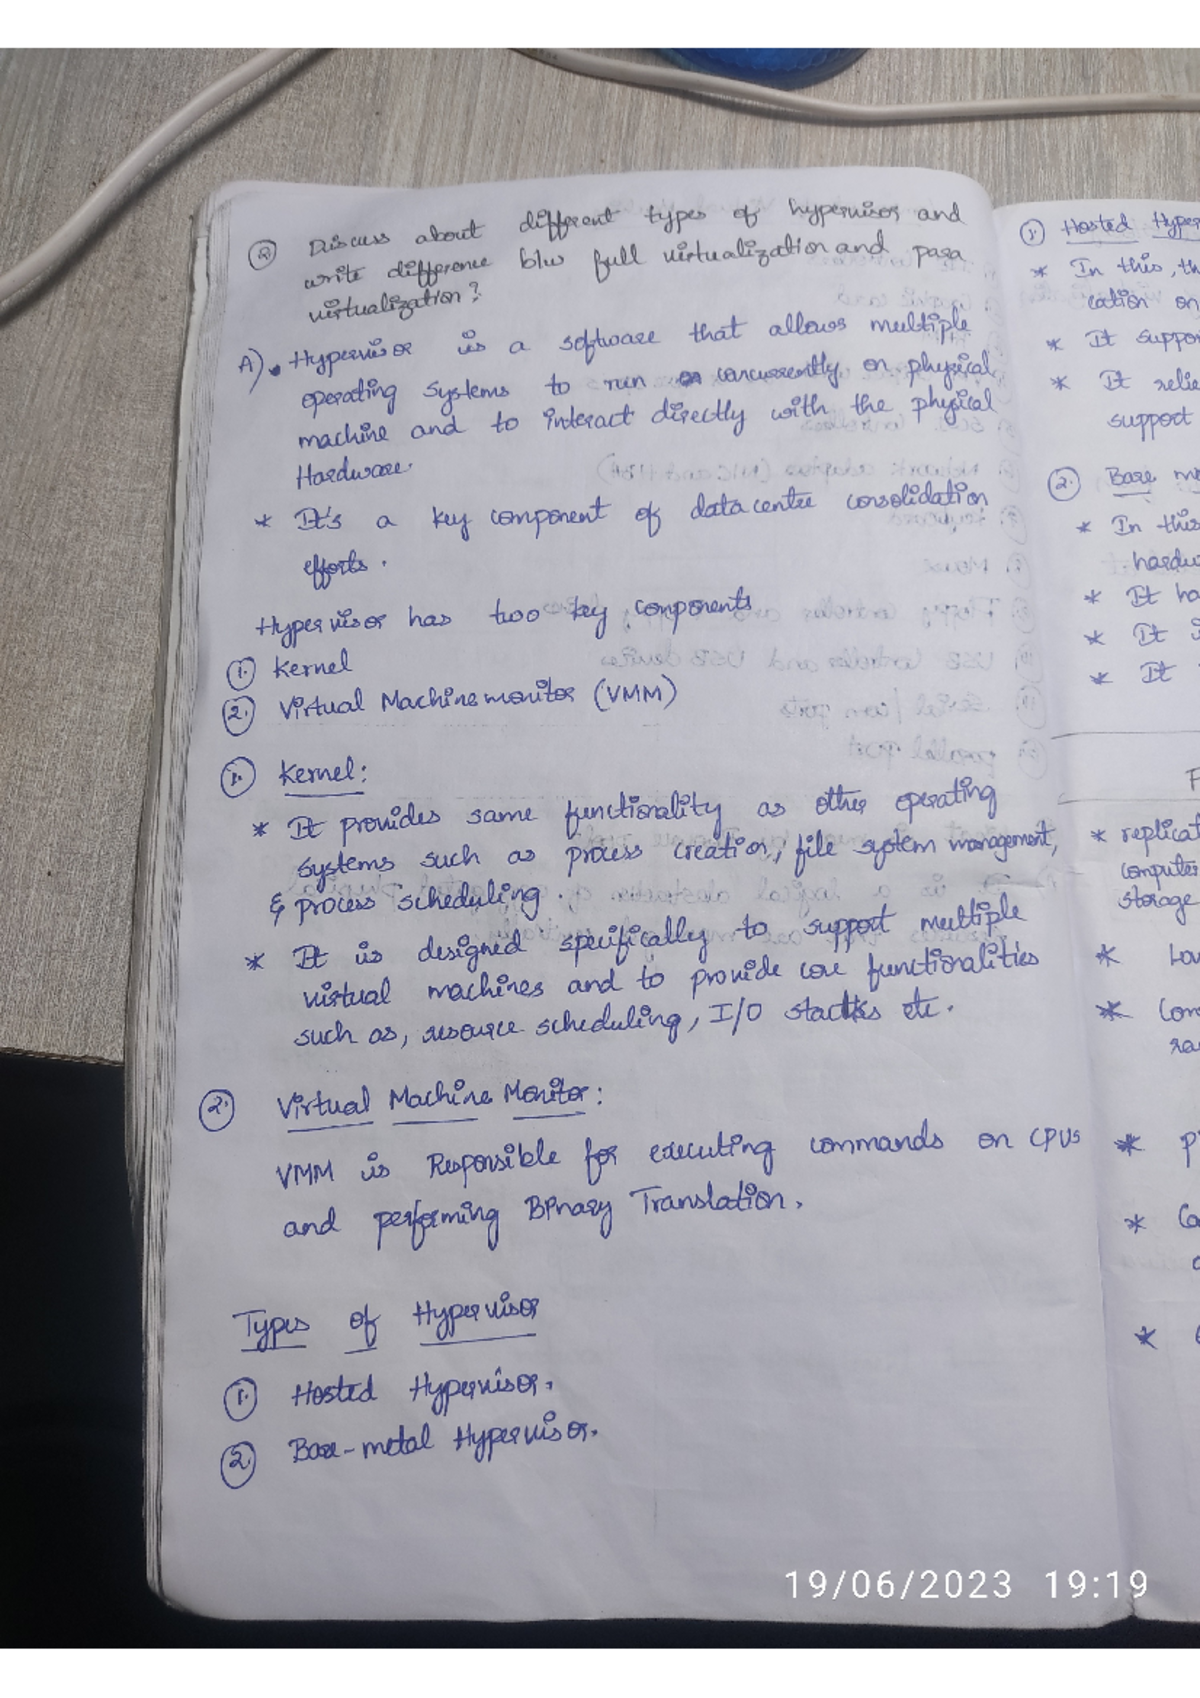 ② Discuss about different types of hypervisor and
write difference b/w full virtualization and para
virtualization?
A). Hypervisor is a software that allows multiple
operating systems to run concurrently on physical
machine and to interact directly with the physical
Hardware.
* It's a key component of data centre consolidation
efforts.
Hypervisor has two key components
①. Kernel
②. Virtual Machine monitor (VMM)
①. Kernel:
* It provides same functionality as other operating
systems such as process creation, file system management,
& process scheduling.
* It is designed specifically to support multiple
virtual machines and to provide core functionalities
such as, resource scheduling, I/O stacks etc.
②. Virtual Machine Monitor:
VMM is Responsible for executing commands on CPUs
and performing Binary Translation.
Types of Hypervisor
①. Hosted Hypervisor.
②. Bare-metal Hypervisor.
① Hosted Hyper
* In this, th
cation on
* It suppor
* It relie
support
②. Bare me
* In this
hardw
* It ha
* It i
* It
F
* replicat
computer
storage
* Low
* Com
ra
* P
* Ca
*
19/06/2023 19:19